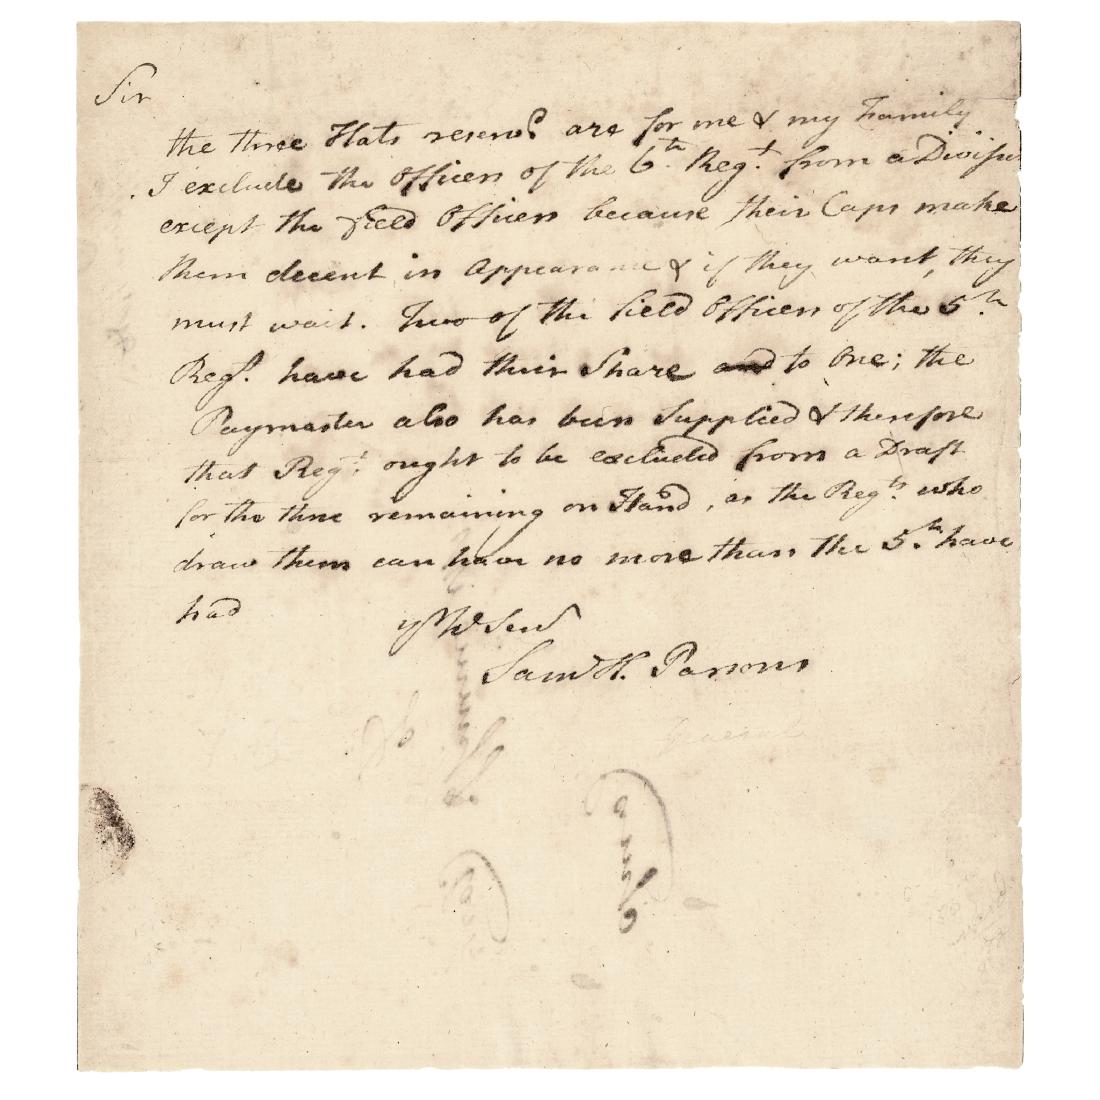 Sir
the three Hats reserv'd are for me & my Family
I exclude the Officers of the 6th Regt. from a Division
except the field Officers because their Caps make
them decent in Appearance & if they want, they
must wait. Two of the field Officers of the 5th
Regt. have had their Share and to One; the
Paymaster also has been Supplied & therefore
that Regt. ought to be excluded from a Draft
for the three remaining on Hand, as the Regts who
draw them can have no more than the 5th have
had
yr H Serv
Saml H. Parsons
General